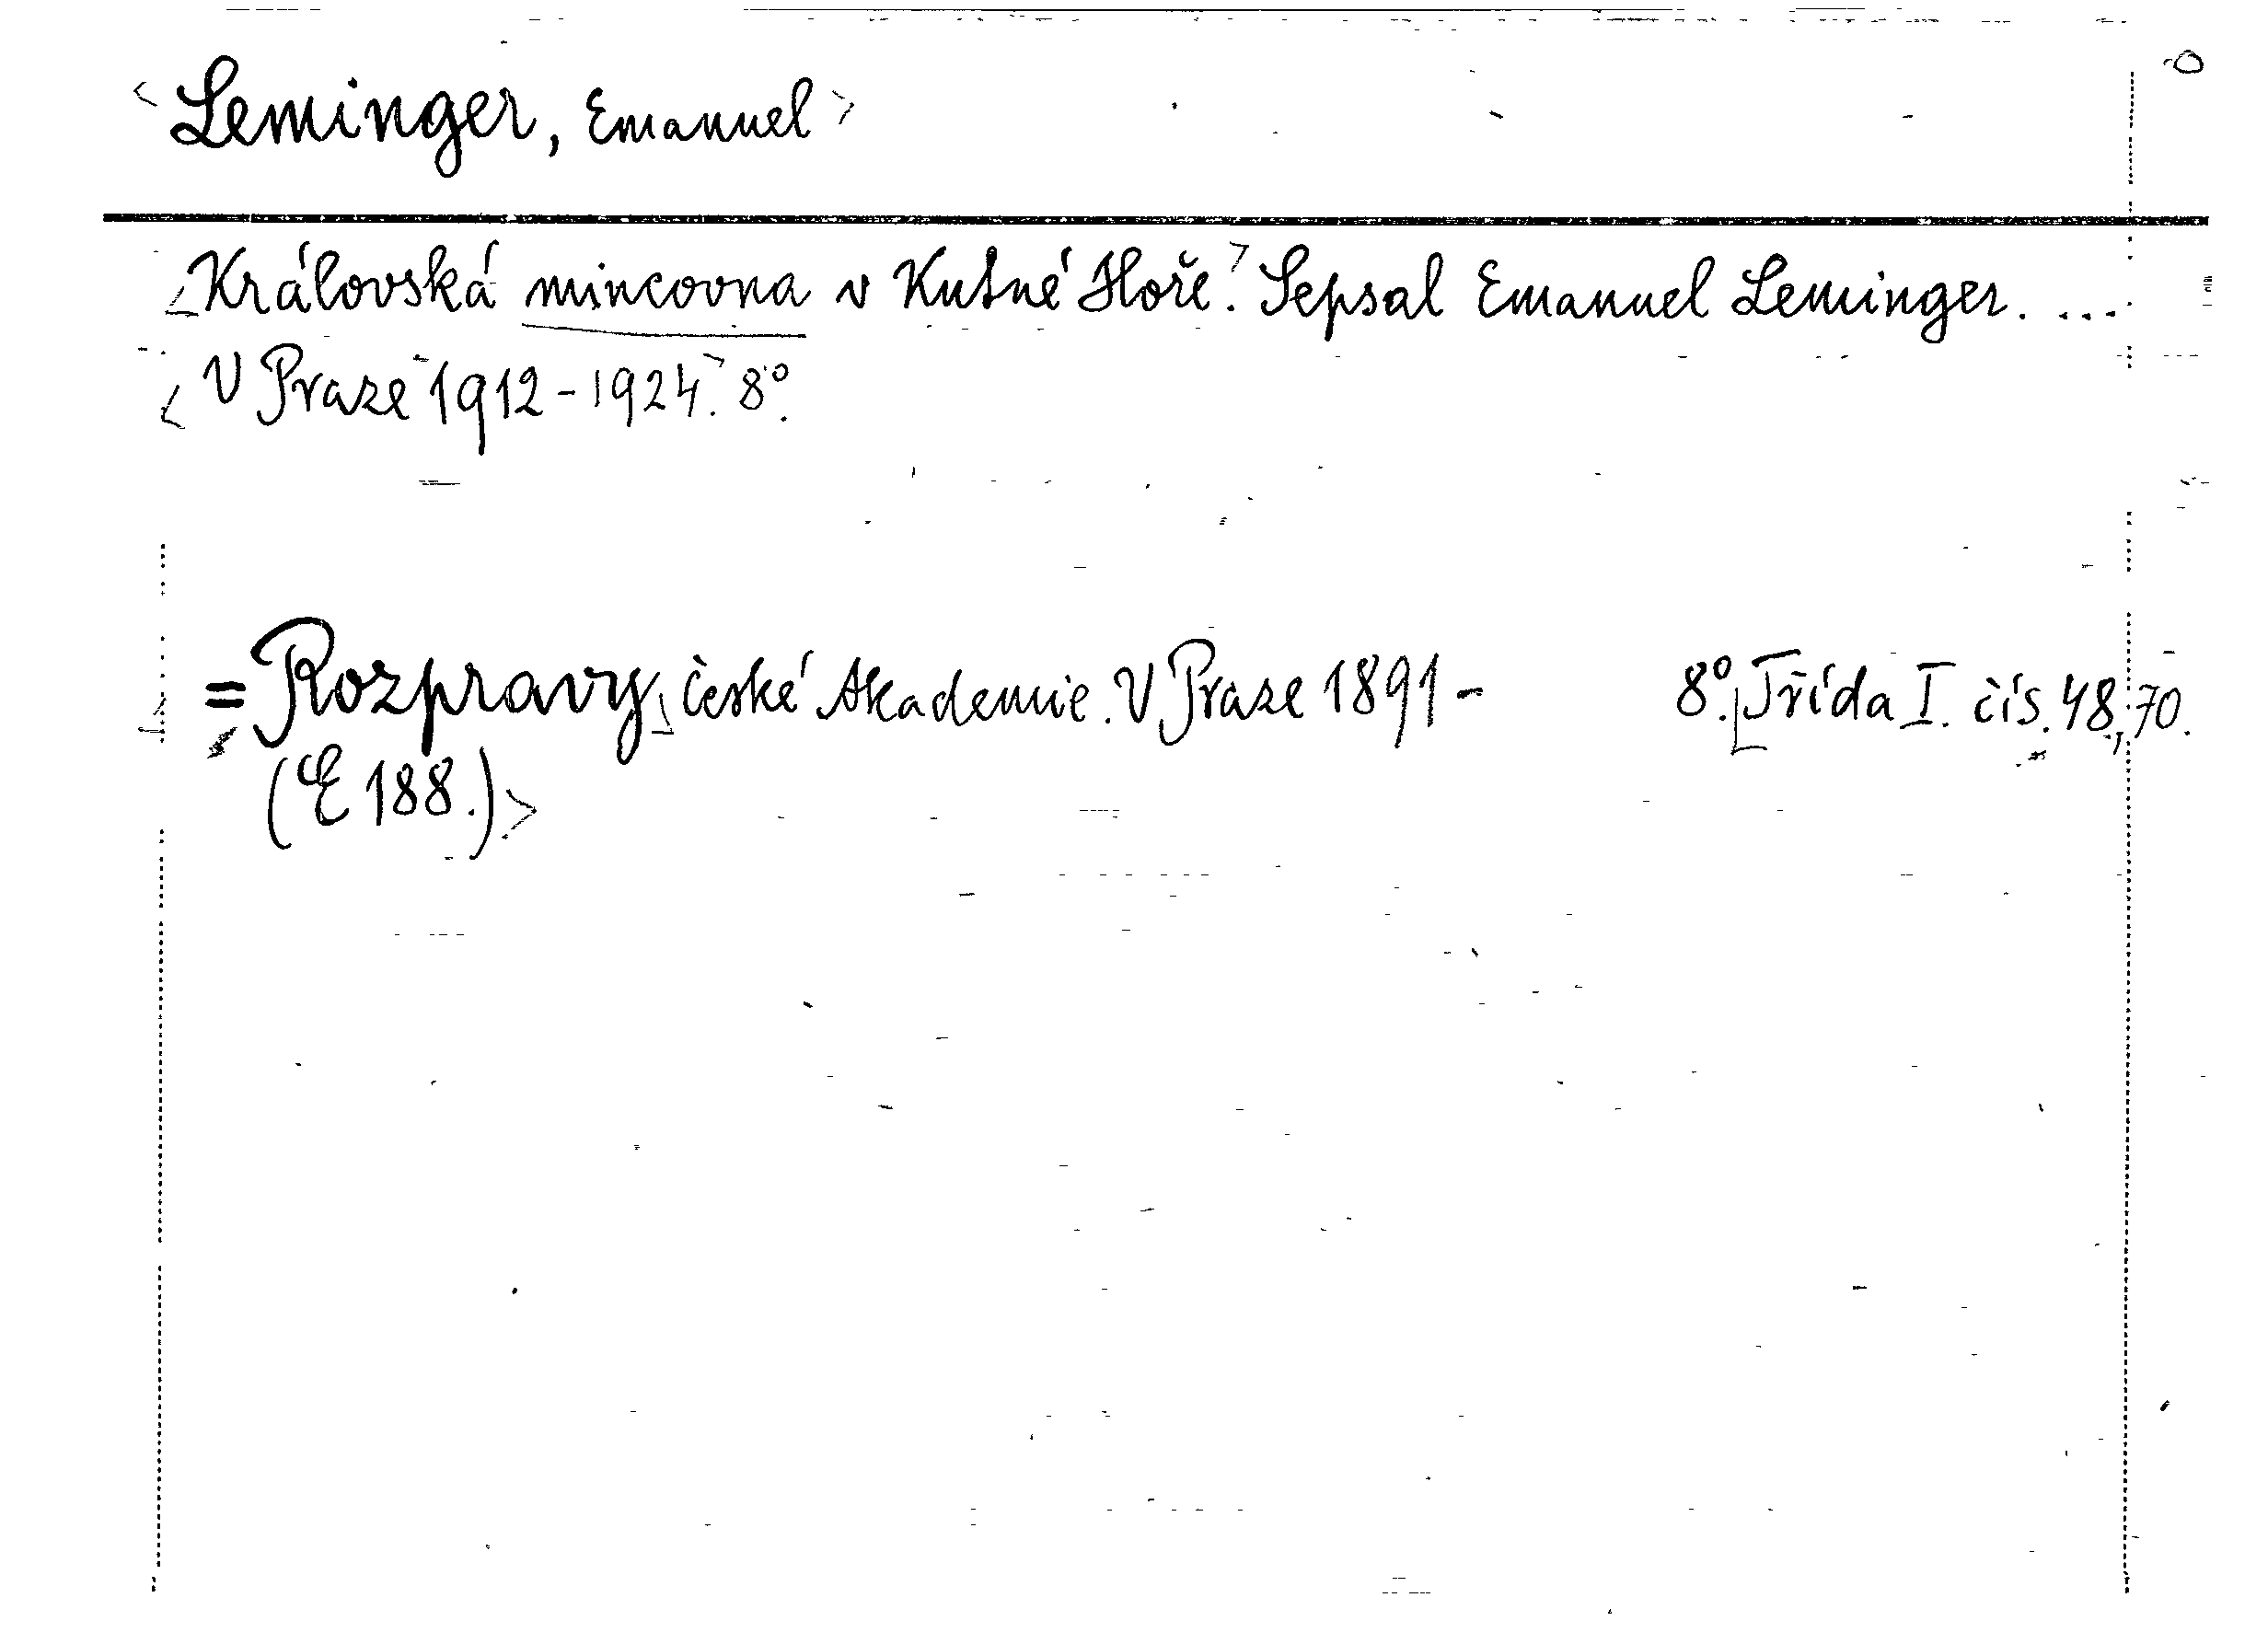 <Leminger, Emanuel>
<Královská mincovna v Kutné Hoře>. Sepsal Emanuel Leminger. ...
<V Praze 1912-1924>. 8°.
=Rozpravy České Akademie. V Praze 1891- 8°. Třída I. čís. 48, 70.
(E 188.)>